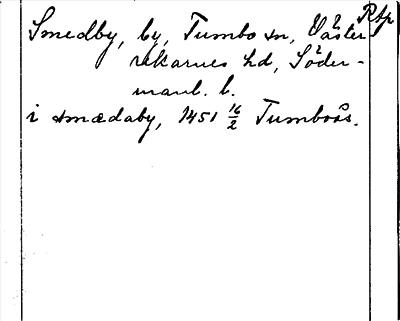 Rsp
Smedby, by, Tumbo sn, Väster
rekarnes hd, Söder-
manl. l.
i smædaby, 1451 16/2 Tumboås.